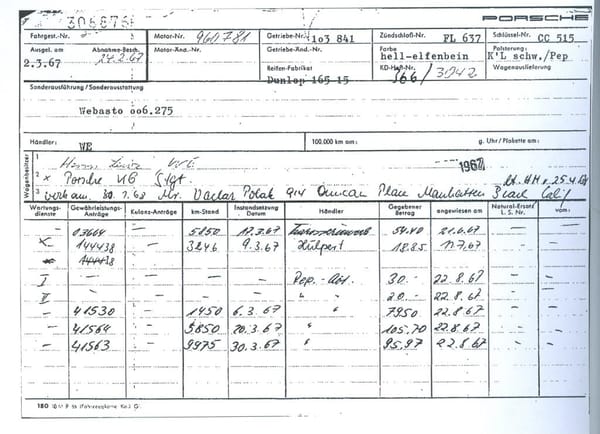 306876 PORSCHE
Fahrgest.-Nr. Motor-Nr. 960781 Getriebe-Nr. 103 841 Zündschloß-Nr. FL 637 Schlüssel-Nr. CC 515
Ausgel. am 2.3.67 Abnahme-Besch. Motor-Änd.-Nr. Getriebe-Änd.-Nr. Farbe hell-elfenbein Polsterung: K'L schw./Pep
Reifen-Fabrikat Dunlop 165 15 KD-Heft-Nr. 3042 Wagenauslieferung
Sonderausführung / Sonderausstattung
Webasto 006.275
Händler: WE 100.000 km am: g. Uhr / Plakette am:
Wagenbesitzer
1 Herrn WE
2 x Porsche KG Stgt. 1967
3 verk. am. 30.7.68 Mr. Vaclav Polak 914 Duncan Place Manhatten Beach Calif
Wartungs-dienste Gewährleistungs-Anträge Kulanz-Anträge km-Stand Instandsetzung - Datum Händler Gegebener Betrag angewiesen am Natural-Ersatz L. S. Nr. vom:
— 03604 — 5150 17.3.67 54.40 21.6.67 — —
x 144438 — 3246 9.3.67 Hülpert 18.85 11.7.67 — —
144438
I — — — — Rep.-Abt. 30.- 22.8.67 — —
II — — — — " " 20.- 22.8.67 — —
— 41530 — 1450 6.3.67 " 7950 22.8.67 — —
— 41564 — 5850 20.3.67 " 105.70 22.8.67 — —
— 41563 — 9975 30.3.67 " 95.97 22.8.67 — —
180